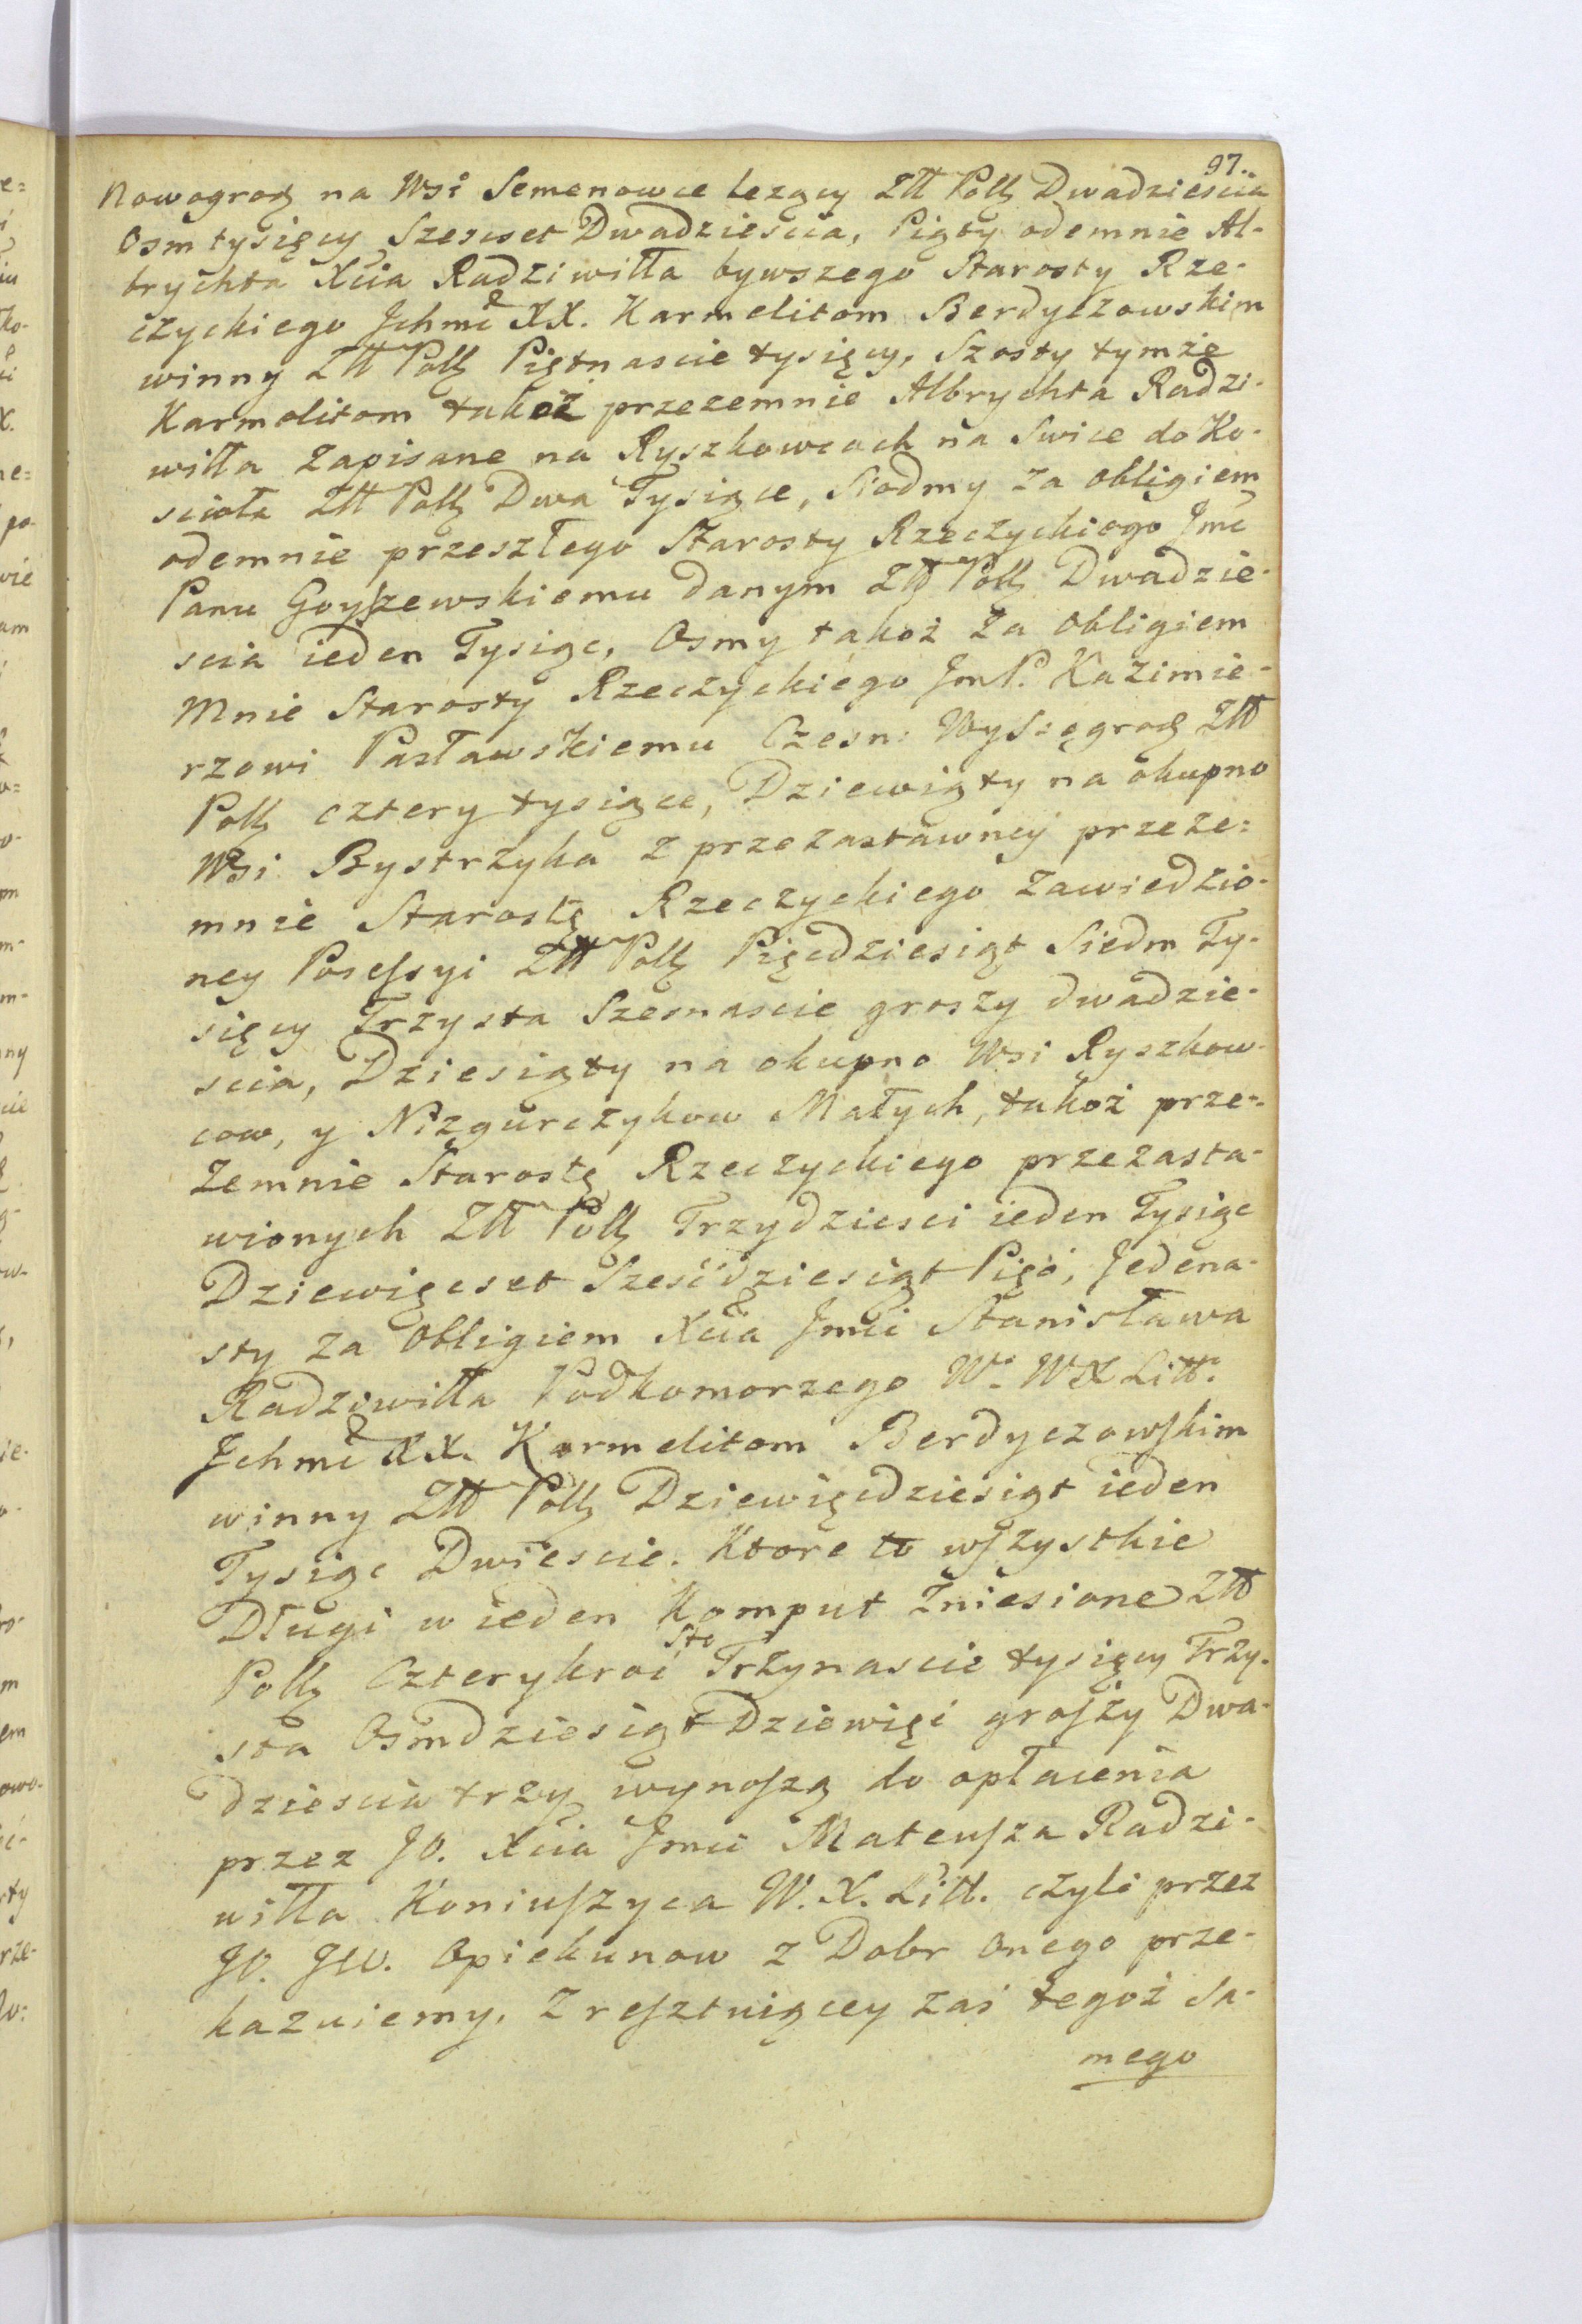 97.
Nowogrodz na Wsi Semenowce lezący Złł Polł Dwadziescia
Osm tysięcy Szescset Dwadziescia, Piąty odemnie Al-
brychta Xcia Radziwiłła bywszego Starosty Rze-
czyckiego Jchmć XX. Karmelitom Berdyczowskim
winny Złł Polł Piętnascie tysięcy, Szosty tymże
Karmelitom takoż przezemnie Albrychta Radzi-
wiłła Zapisane na Ryszkowcach na Swice do Ko-
scioła Złł Polł Dwa Tysiące, Siodmy za obligiem
odemnie przeszłego Starosty Rzeczyckiego Jmć
Panu Goyszewskiemu danym Złł Polł Dwadzie-
scia ieden Tysiąc, Osmy takoż za Obligiem
Mnie Starosty Rzeczyckiego JmP. Kazimie-
rzowi Pasławskiemu Czesn: Wyszegrodz Złł
Polł cztery tysiące, Dziewiąty na okupno
Wsi Bystrzyka z przezastawney przeze=
mnie Starostę Rzeczyckiego zawiedzio-
ney Possesyi Złł Polł Pięcdziesiąt Siedm Ty-
sięcy Trzysta Szesnascie groszy dwadzie-
scia, Dziesiąty na okupno Wsi Ryszkow-
cow, y Nizgurczykow Małych, takoż prze-
Zemnie Starostę Rzeczyckiego przezasta-
wionych Złł Polł Trzydziesci ieden Tysiąc
Dziewięcset Szesćdziesiąt Pięć, Jedena-
sty za Obligiem Xcia Jmci Stanisława
Radziwiłła Podkomorzego W. WX Litt.
Jchmć XX. Karmelitom Berdyczowskim
winny Złł Polł Dziewięcdziesiąt ieden
Tysiąc Dwiescie. Ktore to wszystkie
Długi w ieden Komput zniesione Złł
Polł Czterykroć Sto Trzynascie tysięcy Trzy-
sta Osmdziesiąt Dziewięć groszy Dwa-
dziescia trzy wynoszą do opłacenia
przez JO. Xcia Jmci Mateusza Radzi-
wiłła Koniuszyca W. X. Litt. czyli przez
JO. JW. Opiekunow z Dobr onego prze-
kazuiemy. Z resztuiącey zaś tegoż sa-
mego